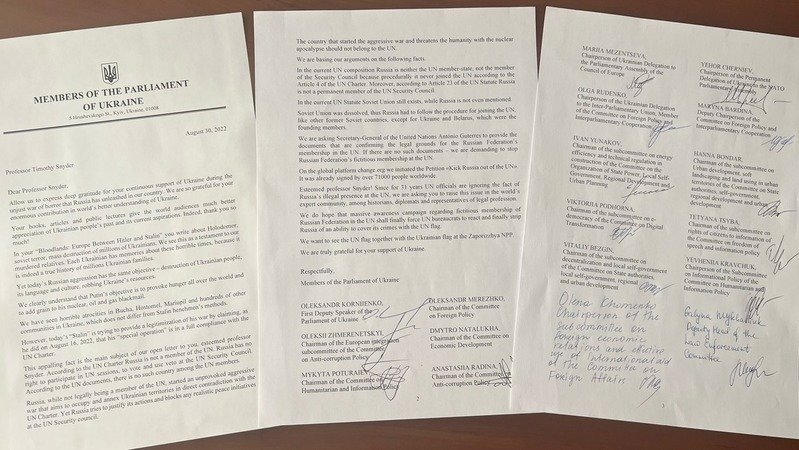 MEMBERS OF THE PARLIAMENT
OF UKRAINE
5 Hrushevskogo St., Kyiv, Ukraine, 01008
August 30, 2022
Professor Timothy Snyder
Dear Professor Snyder,
Allow us to express deep gratitude for your continuous support of Ukraine during the
unjust war of horror that Russia has unleashed in our country. We are so grateful for your
enormous contribution in world's better understanding of Ukraine.
Your books, articles, and public lectures give the world audiences much better
appreciation of Ukrainian people's past and its current aspirations. Indeed, thank you so
much!
In your "Bloodlands: Europe Between Hitler and Stalin" you wrote about Holodomor,
soviet terror, mass destruction of millions of Ukrainians. We see this as a testament to our
murdered relatives. Each Ukrainian has memories about these horrible times, because it
is indeed a true history of millions Ukrainian families.
Yet today's Russian aggression has the same objective – destruction of Ukrainian people,
its language and culture, robbing Ukraine's resources.
We clearly understand that Putin's objective is to provoke hunger all over the world and
to add grain to his nuclear, oil and gas blackmail.
We have seen horrible atrocities in Bucha, Hostomel, Mariupil and hundreds of other
communities in Ukraine, which does not differ from Stalin henchmen's methods.
However, today's "Stalin" is trying to provide a legitimization of his war by claiming, as
he did on August 16, 2022, that his "special operation" is in a full compliance with the
UN Charter.
This appalling fact is the main subject of our open letter to you, esteemed professor
Snyder. According to the UN Charter Russia is not a member of the UN. Russia has no
right to participate in UN sessions, to vote and use veto at the UN Security Council.
According to the UN documents, there is no such country among the UN members.
Russia, while not legally being a member of the UN, started an unprovoked aggressive
war that aims to occupy and annex Ukrainian territories in direct contradiction with the
UN Charter. Yet Russia tries to justify its actions and blocks any realistic peace initiatives
at the UN Security council.
The country that started the aggressive war and threatens the humanity with the nuclear
apocalypse should not belong to the UN.
We are basing our arguments on the following facts.
In the current UN composition Russia is neither the UN member-state, not the member
of the Security Council because procedurally it never joined the UN according to the
Article 4 of the UN Charter. Moreover, according to Article 23 of the UN Statute Russia
is not a permanent member of the UN Security Council.
In the current UN Statute Soviet Union still exists, while Russia is not even mentioned.
Soviet Union was dissolved, thus Russia had to follow the procedure for joining the UN,
like other former Soviet countries, except for Ukraine and Belarus, which were the
founding members.
We are asking Secretary-General of the United Nations António Guterres to provide the
documents that are confirming the legal grounds for the Russian Federation's
membership in the UN. If there are no such documents – we are demanding to stop
Russian Federation's fictitious membership at the UN.
On the global platform change.org we initiated the Petition «Kick Russia out of the UN».
It was already signed by over 71000 people worldwide.
Esteemed professor Snyder! Since for 31 years UN officials are ignoring the fact of
Russia's illegal presence at the UN, we are asking you to raise this issue in the world's
expert community, among historians, diplomats and representatives of legal profession.
We do hope that massive awareness campaign regarding fictitious membership of
Russian Federation in the UN shall finally force UN bureaucrats to react and finally strip
Russia of an ability to covert its crimes with the UN flag.
We want to see the UN flag together with the Ukrainian flag at the Zaporizzhya NPP.
We are truly grateful for your support of Ukraine.
Respectfully,
Members of the Parliament of Ukraine
OLEKSANDR KORNIENKO,
First Deputy Speaker of the
Parliament of Ukraine
OLEKSANDR MEREZHKO,
Chairman of the Committee
on Foreign Policy
OLEKSII ZHMERENETSKYI,
Chairman of the European integration
subcommittee of the Committee
on Anti-corruption Policy
DMYTRO NATALUKHA,
Chairman of the Committee on
Economic Development
MYKYTA POTURAIEV,
Chairman of the Committee
Humanitarian and Information
ANASTASIIA RADINA,
Chairman of the Committee
Anti-corruption Policy
2
MARIIA MEZENTSEVA,
Chairperson of Ukrainian Delegation to
the Parliamentary Assembly of the
Council of Europe
YEHOR CHERNIEV,
Chairperson of the Permanent
Delegation of Ukraine to the NATO
Parliamentary Assembly
OLGA RUDENKO,
Chairperson of the Ukrainian Delegation
to the Inter-Parliamentary Union, Member
of the Committee on Foreign Policy and
Interparliamentary Cooperation
MARYNA BARDINA,
Deputy Chairperson of the
Committee on Foreign Policy and
Interparliamentary Cooperation
IVAN YUNAKOV,
Chairman of the subcommittee on energy
efficiency and technical regulation in
construction of the Committee on the
Organization of State Power, Local Self-
Government, Regional Development and
Urban Planning
HANNA BONDAR,
Chairman of the subcommittee on
Urban development, soft
landscaping and land using in urban
territories of the Committee on State
authorities, self-government and
regional development
VIKTORIIA PODHORNA,
Chairman of the subcommittee on e-
democracy of the Committee on Digital
Transformation
TETYANA TSYBA,
Chairman of the subcommittee on
rights of citizens to information of
the Committee on freedom of
speech and information policy
VITALIY BEZGIN,
Chairman of the subcommittee on
decentralization and local self-government
of the Committee on State authorities,
local self-government, regional
development and urban
YEVHENIIA KRAVCHUK,
Chairperson of the Subcommittee
on Informational Policy of the
Committee of Humanitarian and
Information Policy
Olena Khomenko
Chairperson of the
Subcommittee on
foreign economic
relations and effective
use of international aid
of the Committee on
Foreign Affairs
Galyna Mykhailiuk
Deputy Head of the
Law Enforcement
Committee
3